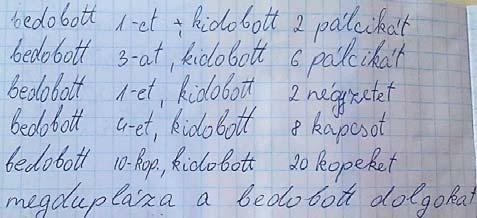 bedobott 1-et, kidobott 2 pálcikát
bedobott 3-at, kidobott 6 pálcikát
bedobott 1-et, kidobott 2 négyzetet
bedobott 4-et, kidobott 8 kapcsot
bedobott 10-kop., kidobott 20 kopeket
megduplázza a bedobott dolgokat